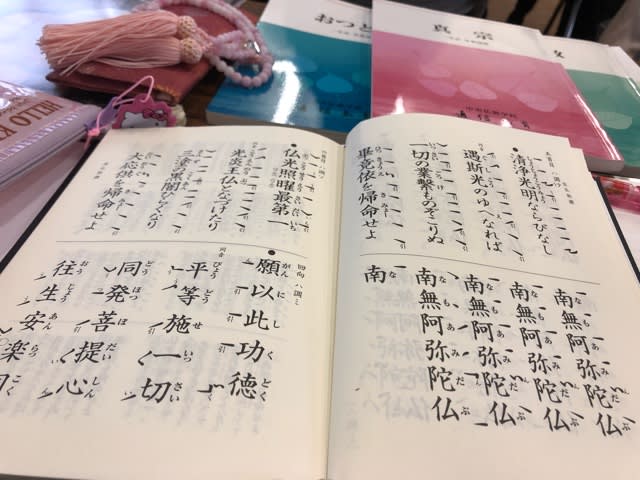 おつと
真宗
中央仏教学院
HELLO K
清浄光明ならびなし
遇斯光のゆゑなれば
一切の業繋ものぞこりぬ
畢竟依を帰命せよ
南無阿弥陀仏
南無阿弥陀仏
南無阿弥陀仏
南無阿弥陀仏
南
仏光照曜最第一
光炎王仏となづけたり
三塗の黒闇ひらくなり
大応供を帰命せよ
回向 ハ調ミ
願以此功徳
同音
平等施一切
同発菩提心
往生安楽